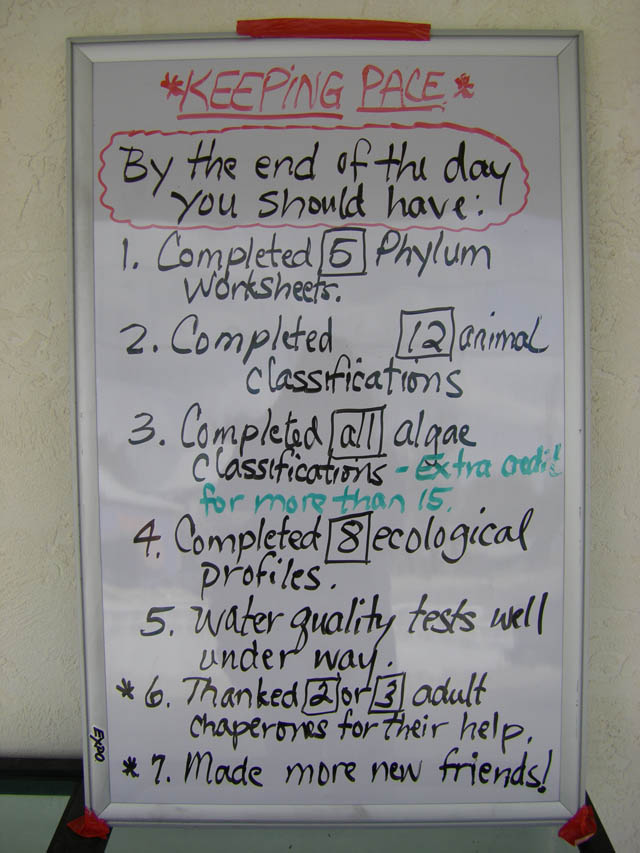 *KEEPING PACE*
By the end of the day
you should have:
1. Completed 5 Phylum
Worksheets.
2. Completed 12 animal
classifications
3. Completed all algae
classifications - Extra credit
for more than 15.
4. Completed 8 ecological
profiles.
5. Water quality tests well
under way.
* 6. Thanked 2 or 3 adult
chaperones for their help.
* 7. Made more new friends!
EXPO